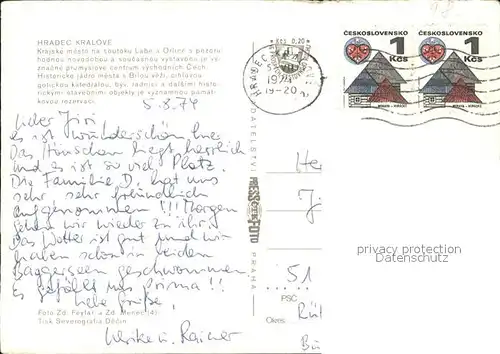 HRADEC KRÁLOVÉ
Krajské město na soutoku Labe a Orlice s pozoru-
hodnou novodobou a současnou výstavbou je vý-
značné průmyslové centrum východních Čech.
Historické jádro města s Bílou věží, sídlavou
gotickou katedrálou, býv. radnicí a dalšími histo-
rickými stavebními objekty je významnou památ-
kovou rezervací.
5.8.74
Lieber Jiří
es ist wunderschön hier.
Das Häuschen liegt herrlich
und es ist so viel Platz.
Die Familie D. hat uns
sehr, sehr freundlich
aufgenommen!!! Morgen
gehen wir wieder zu ihr.
Das Wetter ist gut und wir
haben schon in beiden
Baggerseen geschwommen.
Es gefällt uns prima!!
Liebe Grüße,
Ulrike u. Rainer
Foto Zd. Feyfar a Zd. Menec (4)
Tisk Severografia Děčín
VYDAVATELSTVÍ
PRESSFOTO
ČTK
PRAHA
HRADEC KRÁLOVÉ 2
Kčs 0,20
1974
19-20
ČESKOSLOVENSKO
1
Kčs
ČESKOSLOVENSKO
1
Kčs
51
PSČ
Okres
privacy protection
Datenschutz